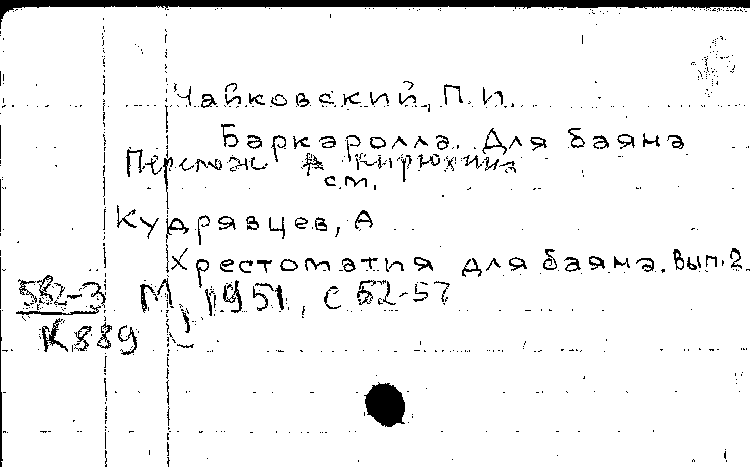 Чайковский, П.И.
Баркаролла. Для баяна
Перелож А Кирюхина
см.
Кудрявцев, А
Хрестоматия для баяна. Вып.2
582-3 М, 1951, с 52-57
К889